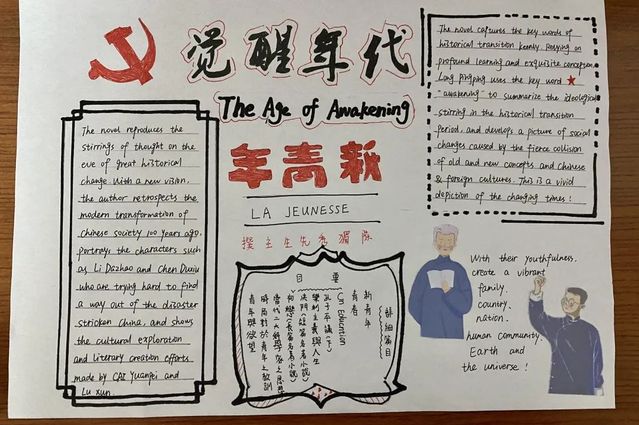 觉醒年代
The Age of Awakening
年青新
LA JEUNESSE
The novel reproduces the
stirrings of thought on the
eve of great historical
change. With a new vision,
the author retrospects the
modern transformation of
Chinese society 100 years ago.
Portray, the characters such
as Li Dazhao and Chen Duxiu
who are trying hard to find
a way out of the disaster
stricken China, and shows
the cultural exploration
and literary creation efforts
made by CAI Yuanpei and
Lu Xun.
The novel captures the key words of
historical transition keenly. Relying on
profound learning and exquisite conception,
Long pingping uses the key word
"awakening" to summarize the ideological
stirring in the historical transition
period, and develops a picture of social
changes caused by the fierce collision
of old and new concepts and Chinese
& foreign cultures. This is a vivid
depiction of the changing times!
目 要
新青年
青春
On Education
With their youthfulness,
create a vibrant
family,
country,
nation,
human community,
Earth and
the universe!